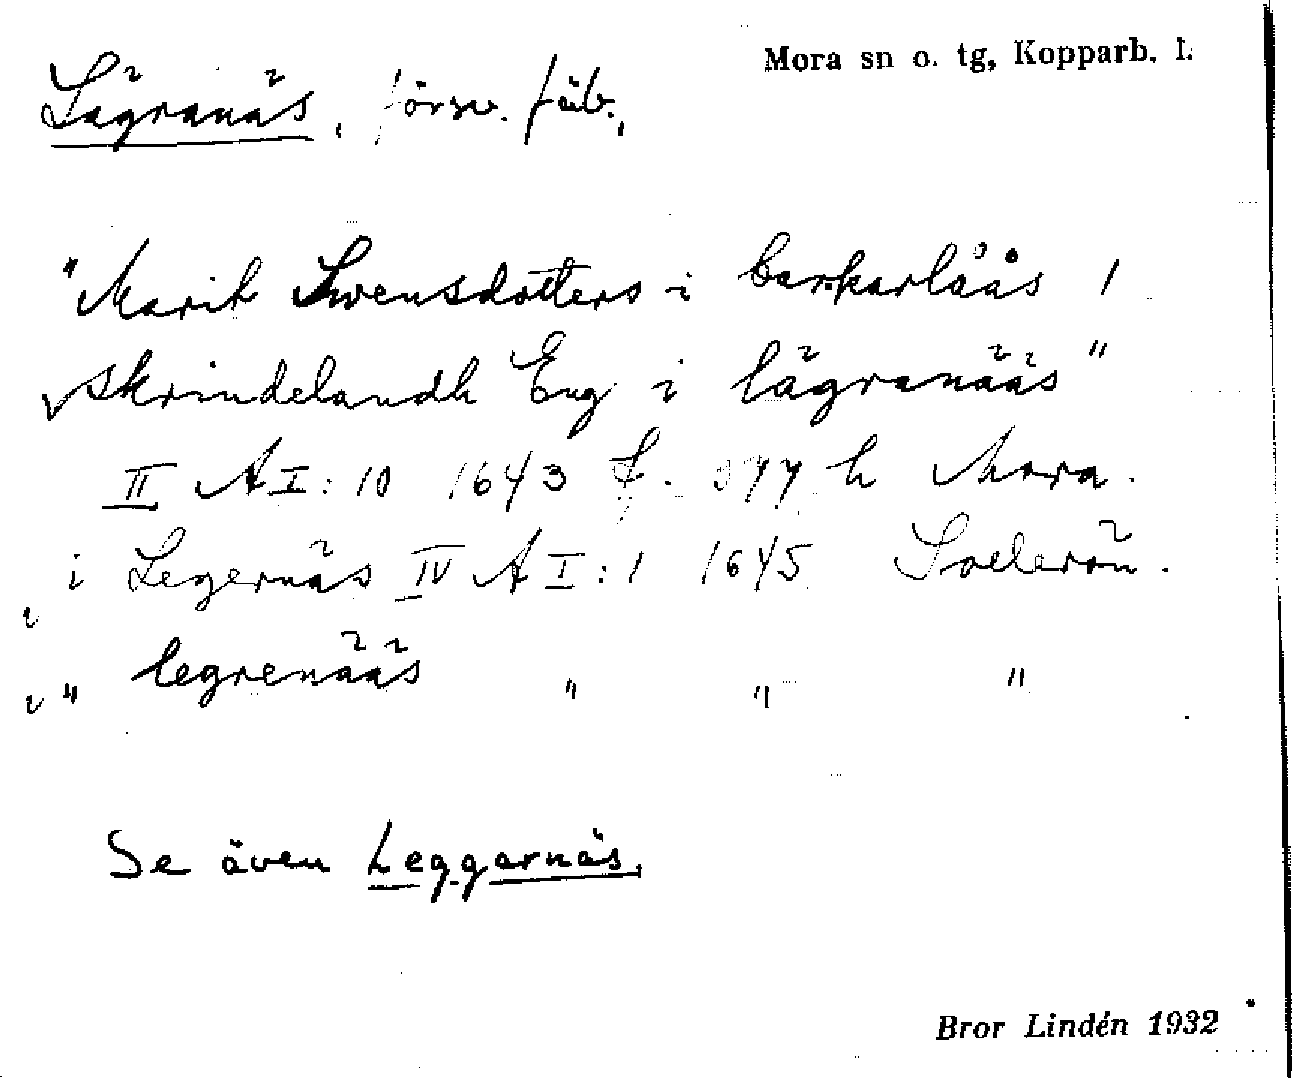 Mora sn o. tg, Kopparb. l.
Lägranäs, försv. fäb.,
"Marit Swensdotters i barkarlåås 1
skrindelandh Eng i lägranääs"
II A I: 10 1643 f. 377 h Mora.
i Legernäs IV A I: 1 1645 Solerön.
" legrenääs " " "
Se även Leggarnäs.
Bror Lindén 1932